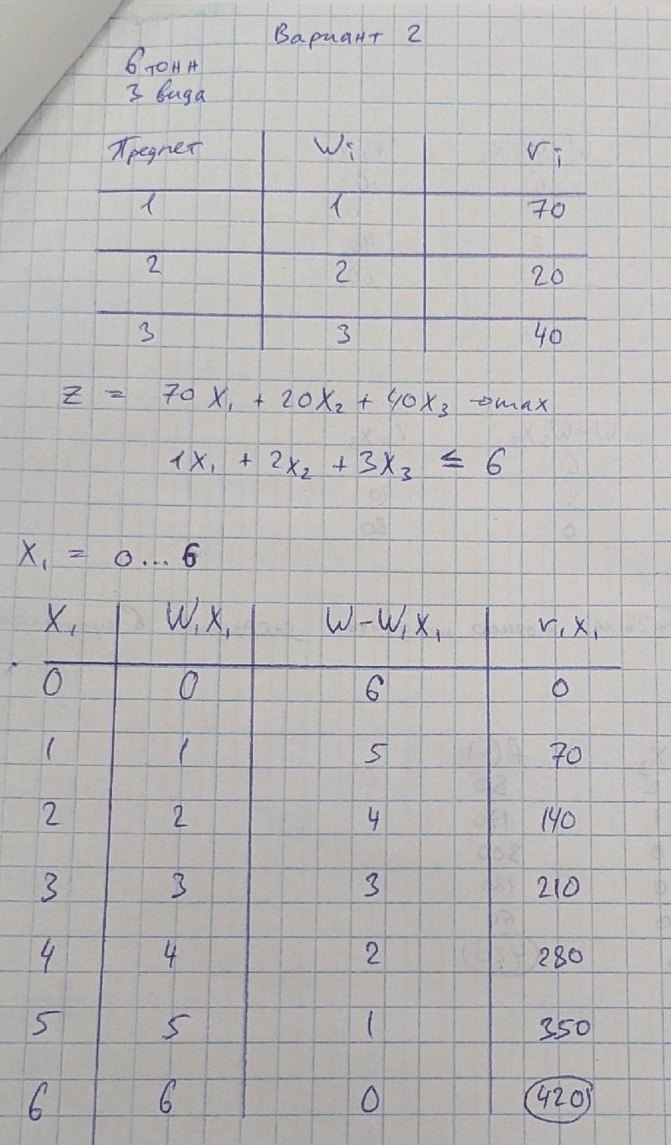 Вариант 2
6 тонн
3 вида
Предмет Wi ri
1 1 70
2 2 20
3 3 40
z = 70 x₁ + 20x₂ + 40x₃ → max
1x₁ + 2x₂ + 3x₃ ≤ 6
x₁ = 0...6
x₁ W₁x₁ W-W₁x₁ r₁x₁
0 0 6 0
1 1 5 70
2 2 4 140
3 3 3 210
4 4 2 280
5 5 1 350
6 6 0 420